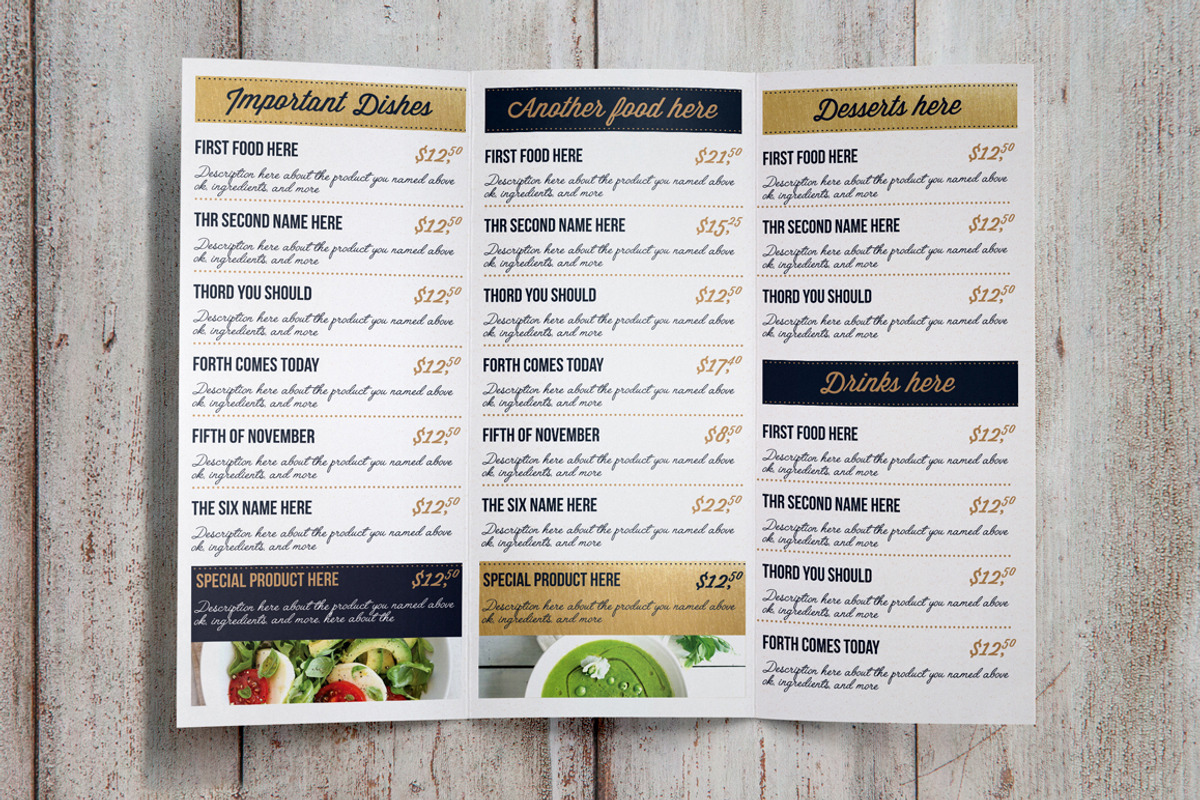 Important Dishes
FIRST FOOD HERE $12,50
Description here about the product you named above
ok, ingredients, and more
THR SECOND NAME HERE $12,50
Description here about the product you named above
ok, ingredients, and more
THORD YOU SHOULD $12,50
Description here about the product you named above
ok, ingredients, and more
FORTH COMES TODAY $12,50
Description here about the product you named above
ok, ingredients, and more
FIFTH OF NOVEMBER $12,50
Description here about the product you named above
ok, ingredients, and more
THE SIX NAME HERE $12,50
Description here about the product you named above
ok, ingredients, and more
SPECIAL PRODUCT HERE $12,50
Description here about the product you named above
ok, ingredients, and more, here about the
Another food here
FIRST FOOD HERE $21,50
Description here about the product you named above
ok, ingredients, and more
THR SECOND NAME HERE $15,25
Description here about the product you named above
ok, ingredients, and more
THORD YOU SHOULD $12,50
Description here about the product you named above
ok, ingredients, and more
FORTH COMES TODAY $17,40
Description here about the product you named above
ok, ingredients, and more
FIFTH OF NOVEMBER $8,50
Description here about the product you named above
ok, ingredients, and more
THE SIX NAME HERE $22,50
Description here about the product you named above
ok, ingredients, and more
SPECIAL PRODUCT HERE $12,50
Description here about the product you named above
ok, ingredients, and more
Desserts here
FIRST FOOD HERE $12,50
Description here about the product you named above
ok, ingredients, and more
THR SECOND NAME HERE $12,50
Description here about the product you named above
ok, ingredients, and more
THORD YOU SHOULD $12,50
Description here about the product you named above
ok, ingredients, and more
Drinks here
FIRST FOOD HERE $12,50
Description here about the product you named above
ok, ingredients, and more
THR SECOND NAME HERE $12,50
Description here about the product you named above
ok, ingredients, and more
THORD YOU SHOULD $12,50
Description here about the product you named above
ok, ingredients, and more
FORTH COMES TODAY $12,50
Description here about the product you named above
ok, ingredients, and more